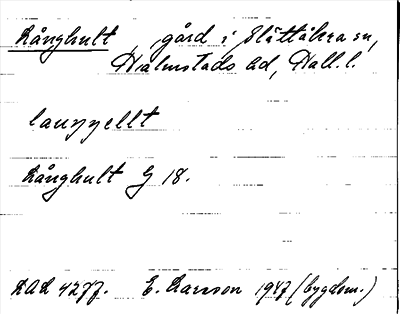 Långhult, gård i Slättåkra sn,
Halmstads hd, Hall. l.
lauŋŋellt
Långhult G 18.
DAL 4277. E. Larsson 1947 (bygdem.)